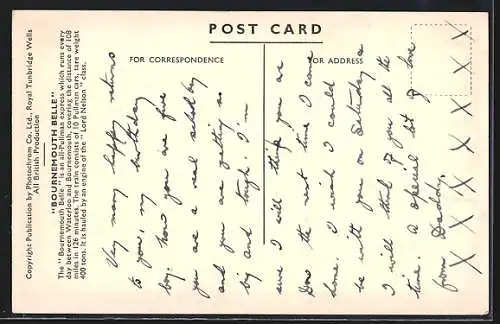 POST CARD
FOR CORRESPONDENCE
FOR ADDRESS
Copyright Publication by Photochrom Co. Ltd., Royal Tunbridge Wells
All British Production
"BOURNEMOUTH BELLE"
The "Bournemouth Belle" is an all-Pullman express which runs every
day between Waterloo and Bournemouth, covering the distance of 108
miles in 126 minutes. The train consists of 10 Pullman cars, tare weight
400 tons. It is hauled by an engine of the "Lord Nelson" class.
Very many happy returns
to you, my birthday
boy. Now you are five
you are a real school boy
and you are getting so
big and tough. I'm
sure I will think you are
the next time I come
home. I wish I could
be with you on Saturday &
I will think of you all the
time. A special lot of love
from Daddy,
X X X X X X X